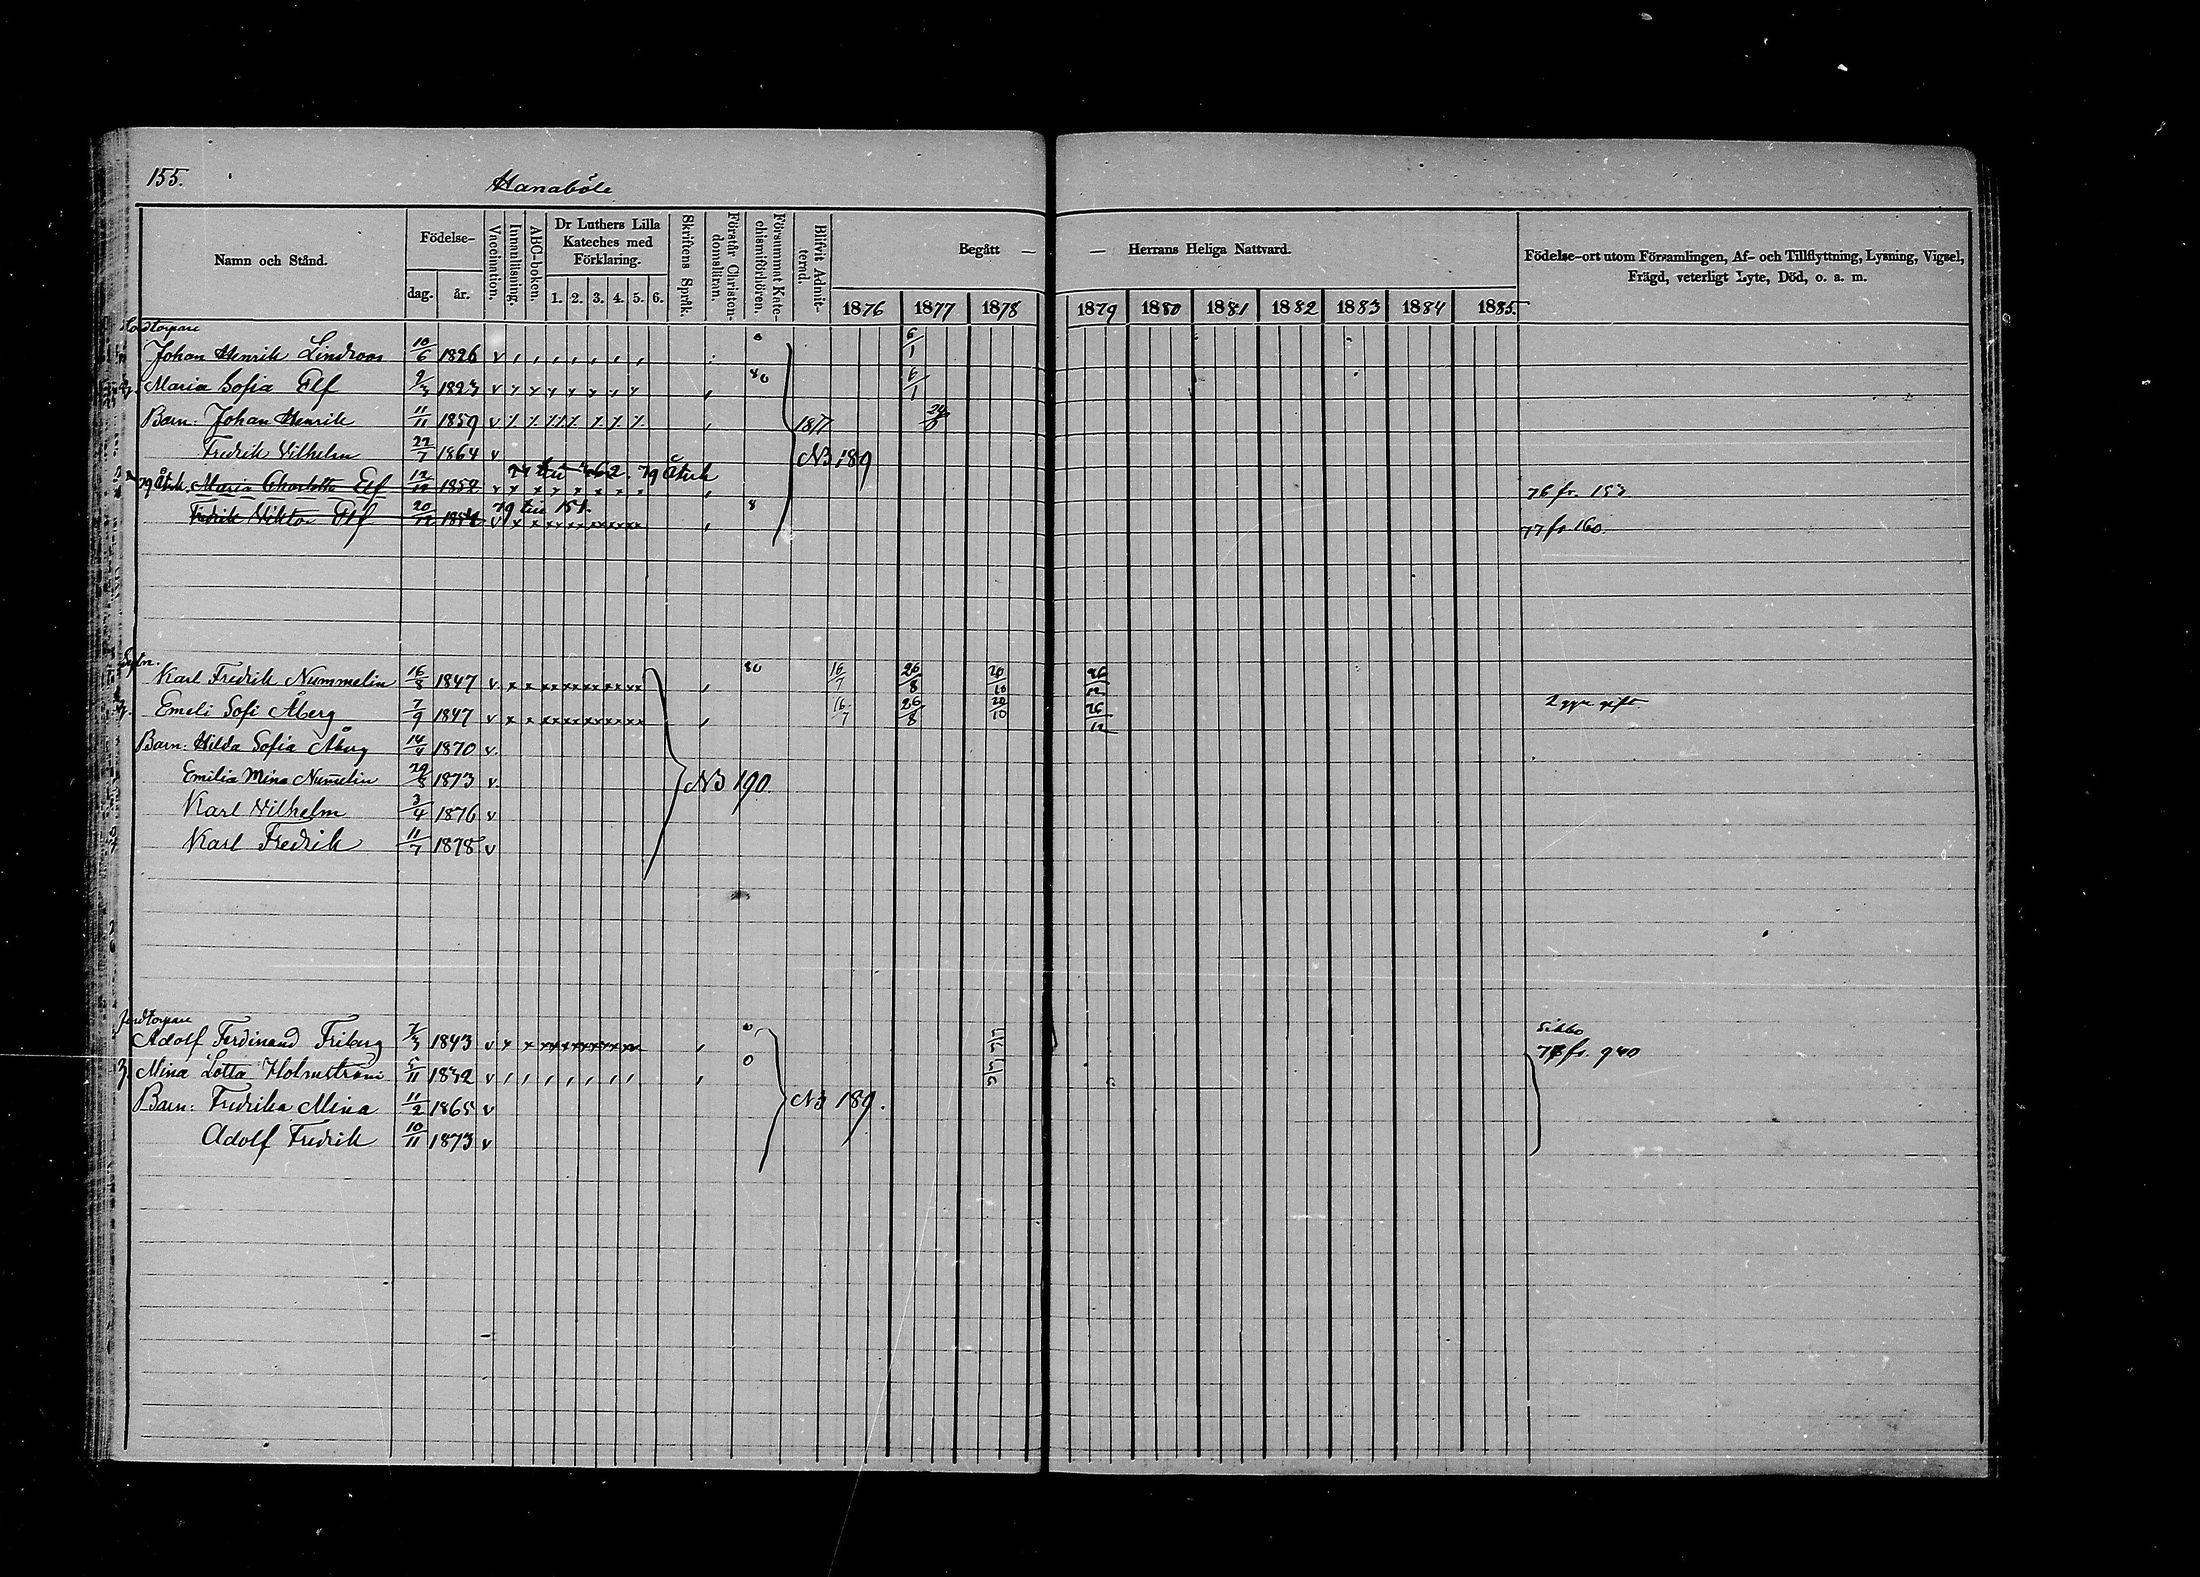 155.
Hanaböle
Namn och Stånd.
Födelse-
dag. år.
Vaccination.
Innanläsning.
ABC-boken.
Dr Luthers Lilla
Kateches med
Förklaring.
1. 2. 3. 4. 5. 6.
Skriftens Språk.
Förstår Christen-
domsläran.
Försummat Kate-
chismiförhören.
Blifvit Admit-
terad.
Begått —
— Herrans Heliga Nattvard.
1876 1877 1878 1879 1880 1881 1882 1883 1884 1885.
Födelse-ort utom Församlingen, Af- och Tillflyttning, Lysning, Vigsel,
Frägd, veterligt Lyte, Död, o. a. m.
Johan Henrik Lindroos 10/6 1826 v 0 6/1
Maria Sofia Elf 9/3 1823 v 80 6/1
Barn: Johan Henrik 11/11 1859 v 1877
Fredrik Vilhelm 22/7 1864 v N3 189
Maria Charlotta Elf 12/12 1852 v 76 fr. 153
79 till 151.
Fredrik Viktor Elf 20/12 1854 v 8 77 fr 160.
Karl Fredrik Nummelin 16/8 1847 v 80 16/7 26/8 20/10 26/12
Emeli Sofi Åberg 7/9 1847 v 16/7 26/8 20/10 26/12 2 ggr gift.
Barn: Hilda Sofia Åberg 14/4 1870 v.
Emilia Mina Numelin 29/3 1873 v. N3 190.
Karl Vilhelm 3/4 1876 v
Karl Fredrik 11/7 1878 v
Jordtorpare
Sibbo
Adolf Ferdinand Friberg 7/3 1843 v 0 78 fr. 940
Mina Lotta Holmström 5/11 1832 v 0
Barn: Fredrika Mina 11/2 1865 v N3 189.
Adolf Fredrik 10/11 1873 v